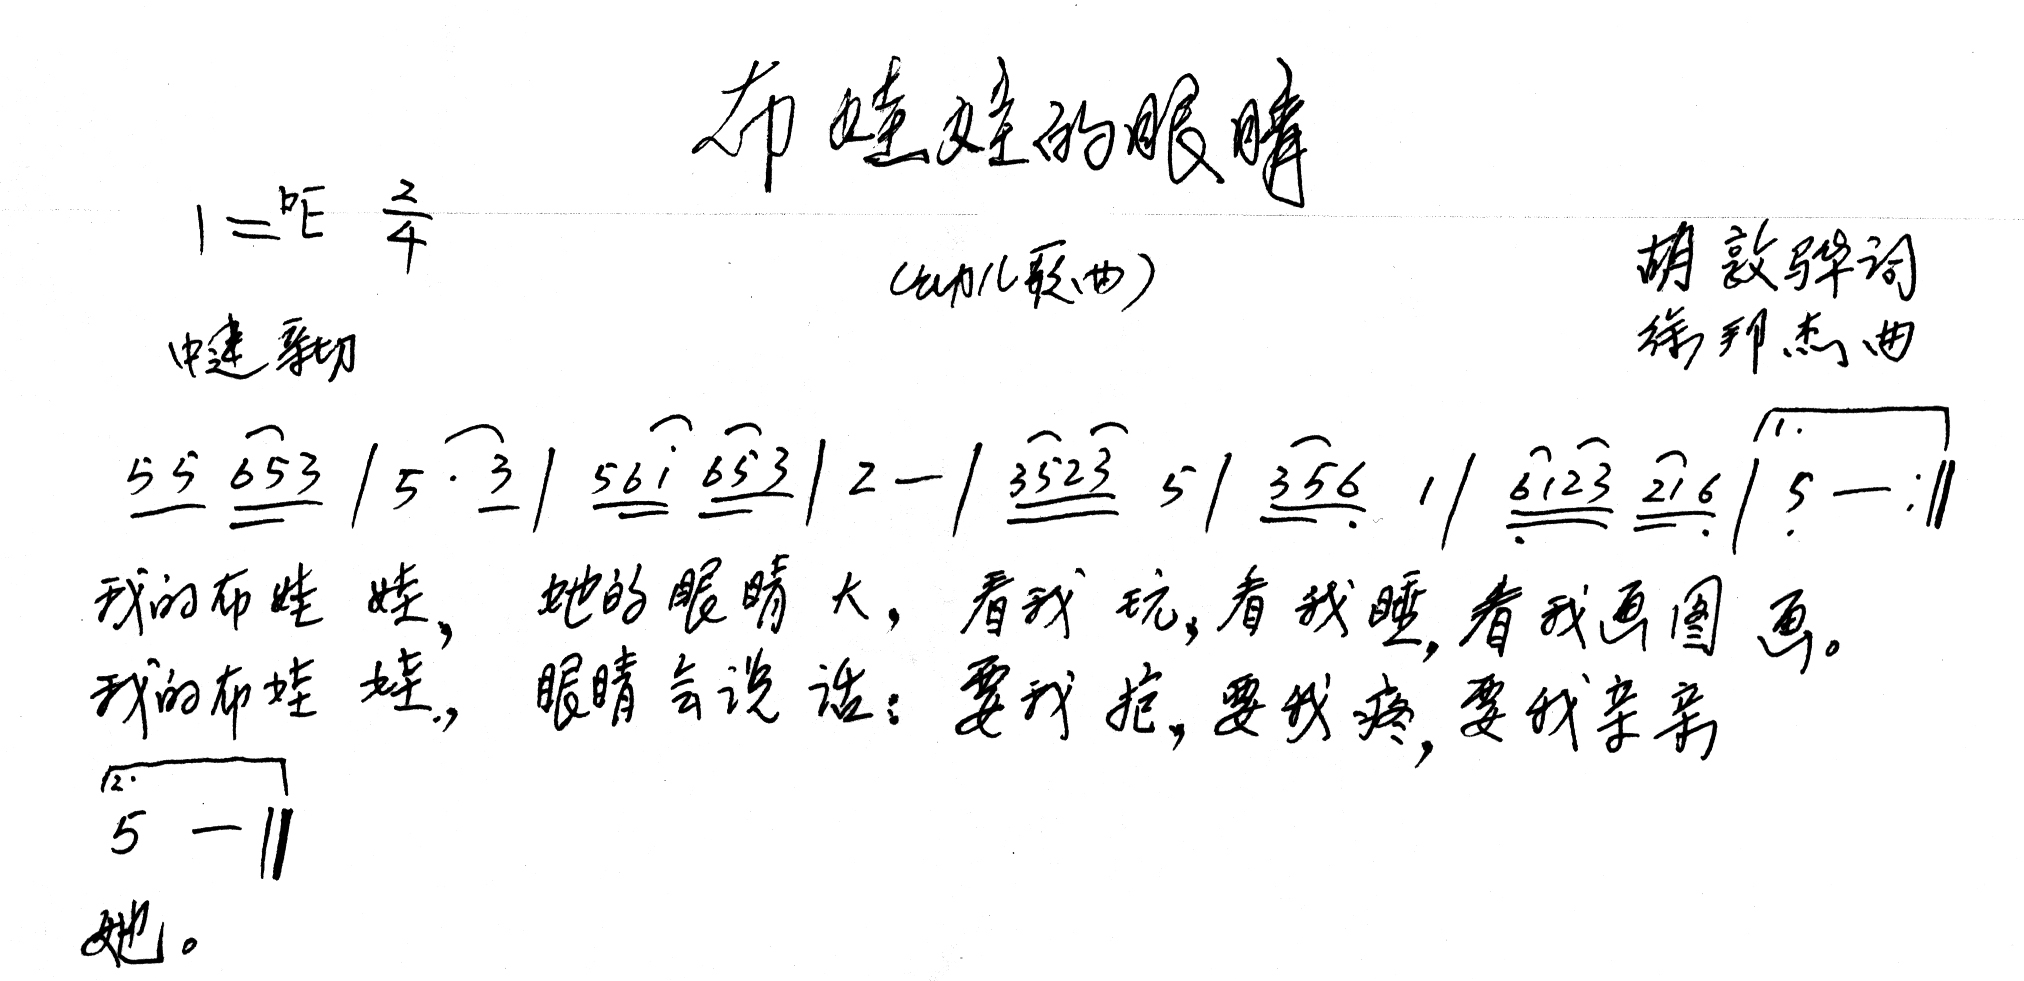 布娃娃的眼睛
1=♭E 2/4
(幼儿歌曲)
胡敦骅词
中速 亲切
徐邦杰曲
5 5 6 5 3 | 5 · 3 | 5 6 i 6 5 3 | 2 — | 3 5 2 3 5 | 3 5 6 1 | 6 1 2 3 2 1 6 | 1. 5 — :‖
我的布娃 娃, 她的眼睛大, 看我玩,看我睡,看我画图画。
我的布娃 娃, 眼睛会说话: 要我抱,要我疼,要我亲亲
2.
5 — ‖
她。